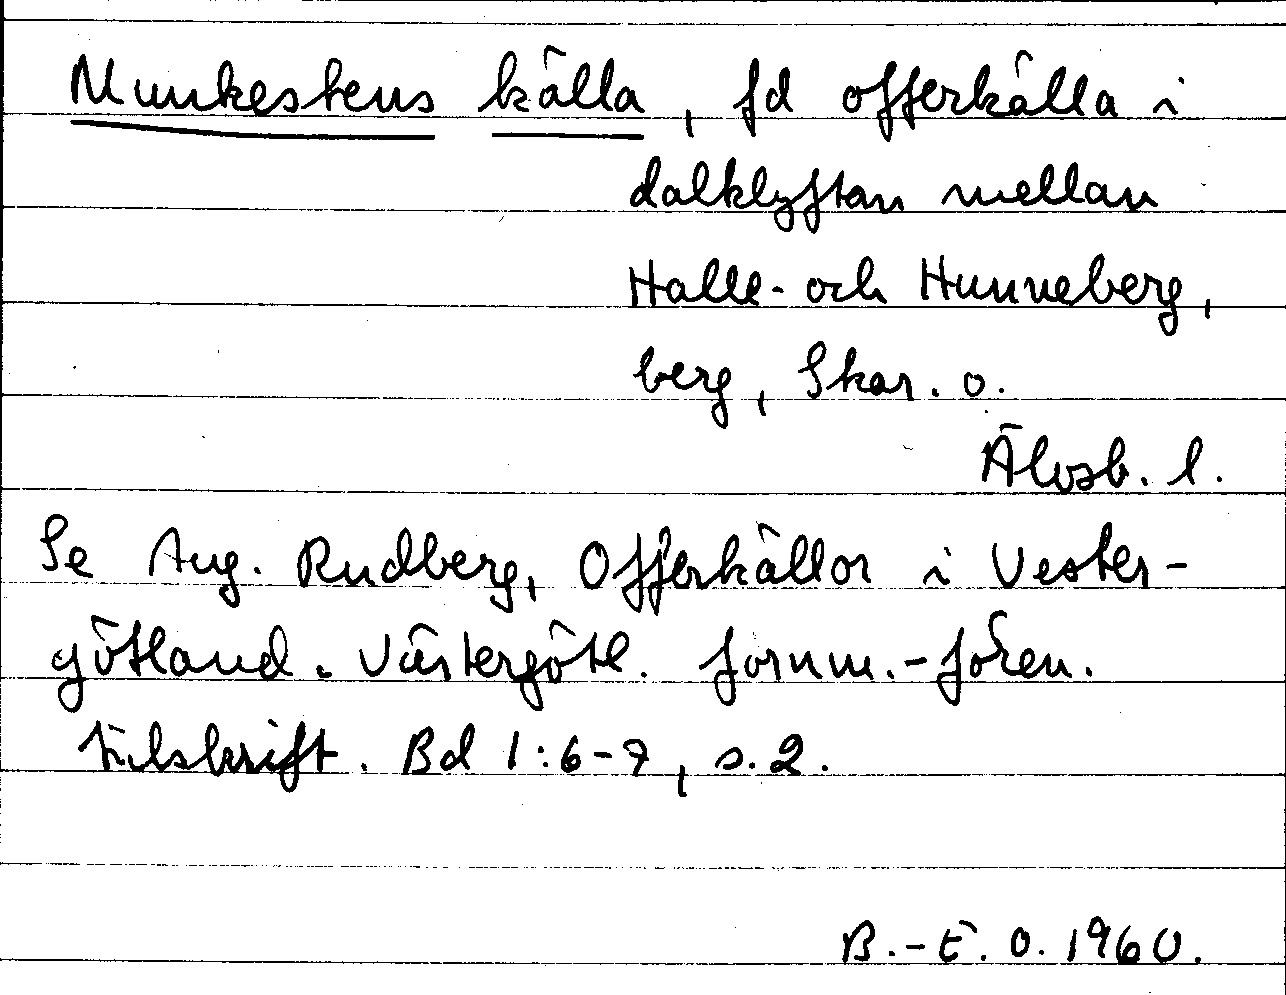 Munkestens källa, fd offerkälla i
dalklyftan mellan
Halle- och Hunneberg,
berg, Skar. o.
Älvsb. l.
Se Aug. Rudberg, Offerkällor i Vester-
götland. Västergötl. fornm.-fören.
tidskrift. Bd 1:6-7, s.2.
B.-E. O. 1960.